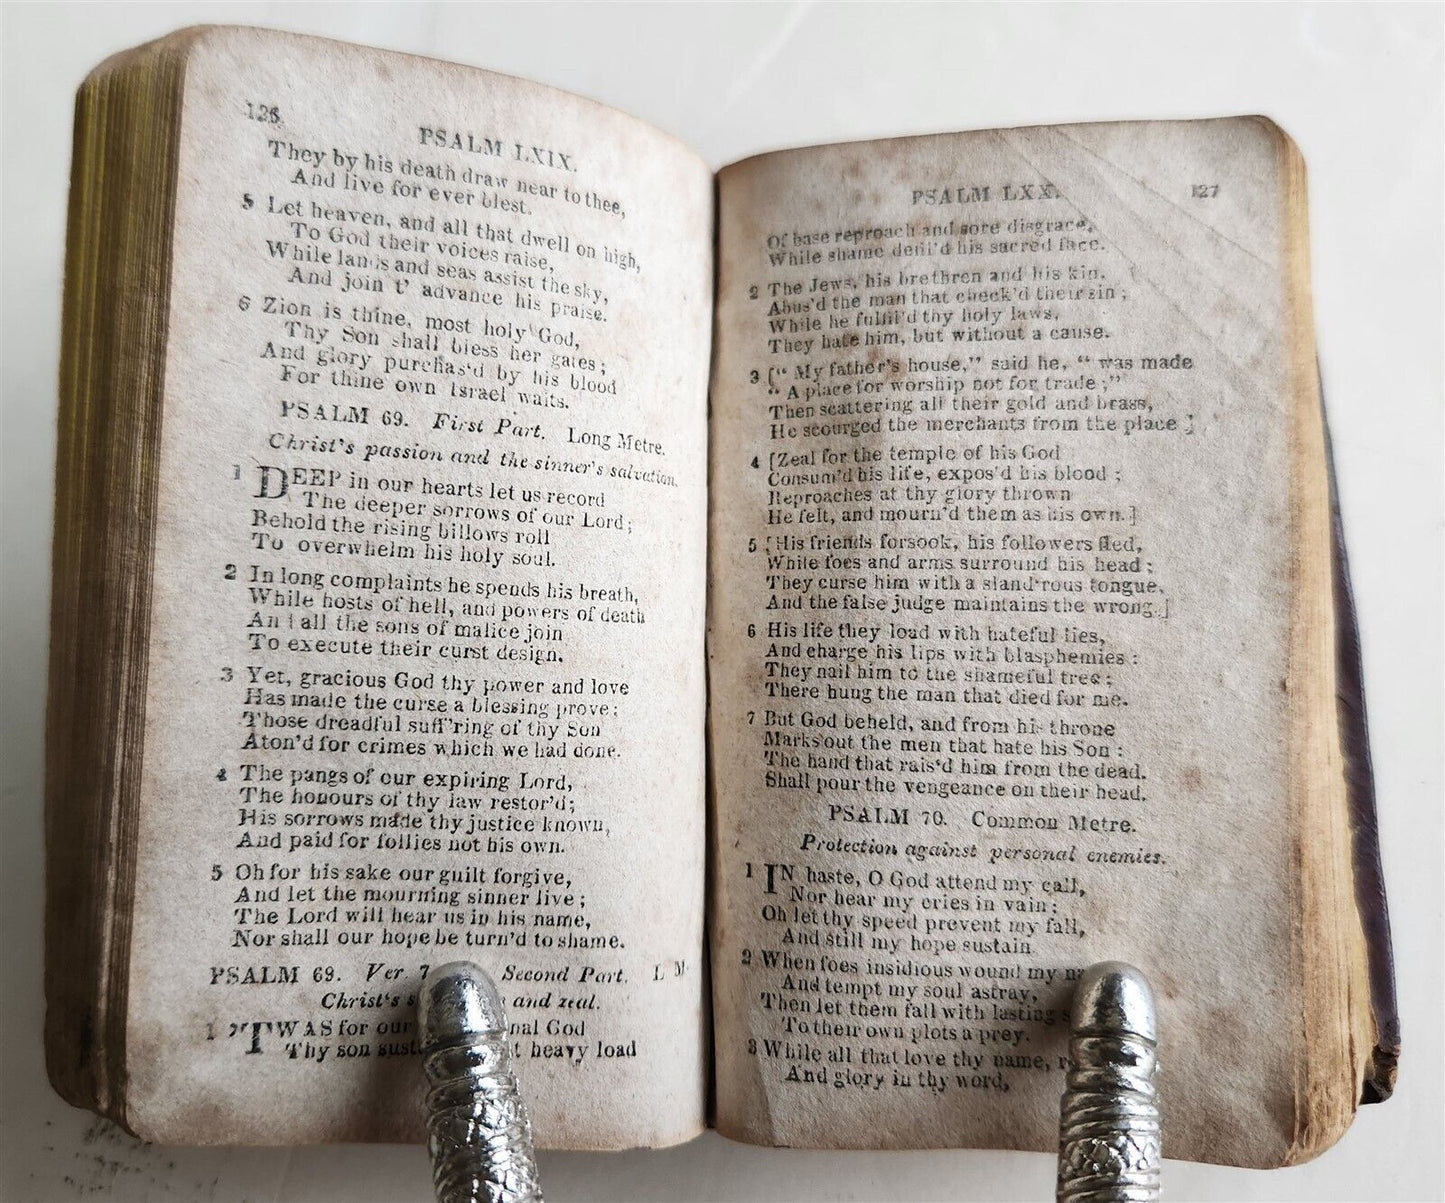 126
PSALM LXIX.
They by his death draw near to thee,
And live for ever blest.
5 Let heaven, and all that dwell on high,
To God their voices raise,
While lands and seas assist the sky,
And join t' advance his praise.
6 Zion is thine, most holy God,
Thy Son shall bless her gates;
And glory purchas'd by his blood
For thine own Israel waits.
PSALM 69. First Part. Long Metre.
Christ's passion and the sinner's salvation.
1 DEEP in our hearts let us record
The deeper sorrows of our Lord;
Behold the rising billows roll
To overwhelm his holy soul.
2 In long complaints he spends his breath,
While hosts of hell, and powers of death
And all the sons of malice join
To execute their curst design.
3 Yet, gracious God thy power and love
Has made the curse a blessing prove;
Those dreadful suff'ring of thy Son
Aton'd for crimes which we had done.
4 The pangs of our expiring Lord,
The honours of thy law restor'd;
His sorrows made thy justice known,
And paid for follies not his own.
5 Oh for his sake our guilt forgive,
And let the mourning sinner live;
The Lord will hear us in his name,
Nor shall our hope be turn'd to shame.
PSALM 69. Ver. 7 Second Part. L M.
Christ's s and zeal.
1 'TWAS for our nal God
Thy son sust t heavy load
PSALM LXX.
127
Of base reproach and sore disgrace,
While shame defil'd his sacred face.
2 The Jews, his brethren and his kin,
Abus'd the man that check'd their sin;
While he fulfil'd thy holy laws,
They hate him, but without a cause.
3 [" My father's house," said he, " was made
" A place for worship not for trade;"
Then scattering all their gold and brass,
He scourged the merchants from the place ]
4 [Zeal for the temple of his God
Consum'd his life, expos'd his blood;
Reproaches at thy glory thrown
He felt, and mourn'd them as his own.]
5 [His friends forsook, his followers fled,
While foes and arms surround his head;
They curse him with a sland'rous tongue,
And the false judge maintains the wrong.]
6 His life they load with hateful lies,
And charge his lips with blasphemies:
They nail him to the shameful tree;
There hung the man that died for me.
7 But God beheld, and from his throne
Marks out the men that hate his Son:
The hand that rais'd him from the dead.
Shall pour the vengeance on their head.
PSALM 70. Common Metre.
Protection against personal enemies.
1 IN haste, O God attend my call,
Nor hear my cries in vain;
Oh let thy speed prevent my fall,
And still my hope sustain.
2 When foes insidious wound my na
And tempt my soul astray,
Then let them fall with lasting s
To their own plots a prey.
3 While all that love thy name, r
And glory in thy word,